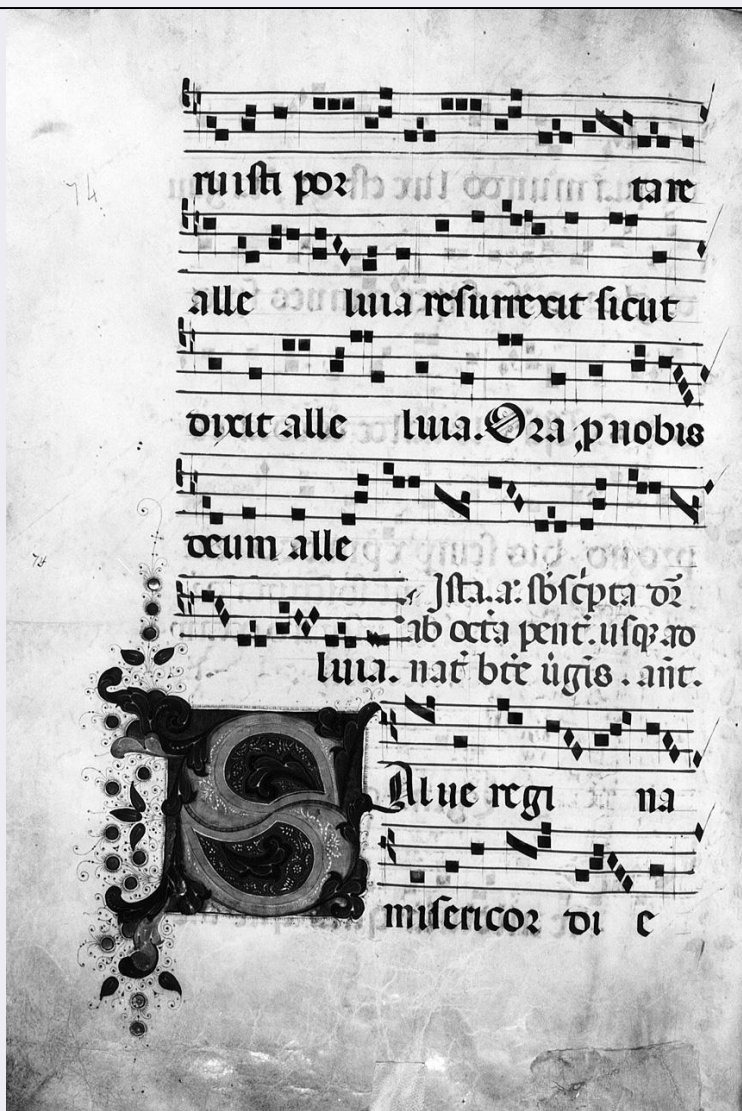 74.
ruisti por tare
alle luia resurrexit sicut
dixit alle luia. Ora p nobis
deum alle
74
Ista. a. sbscpta dr
ab octa pent. usq ad
luia. nat bte ugis . ant.
SAlue regi na
misericor di e